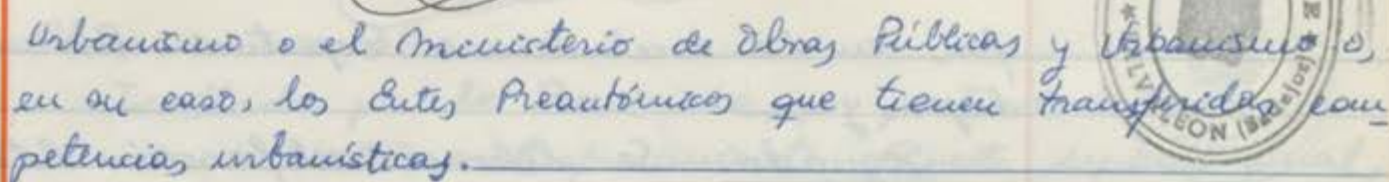 Urbanismo o el Ministerio de Obras Públicas y Urbanismo o,
en su caso, los Entes Preautónomicos que tienen transferidas com
petencias urbanísticas.
LVALEON (Badajoz)